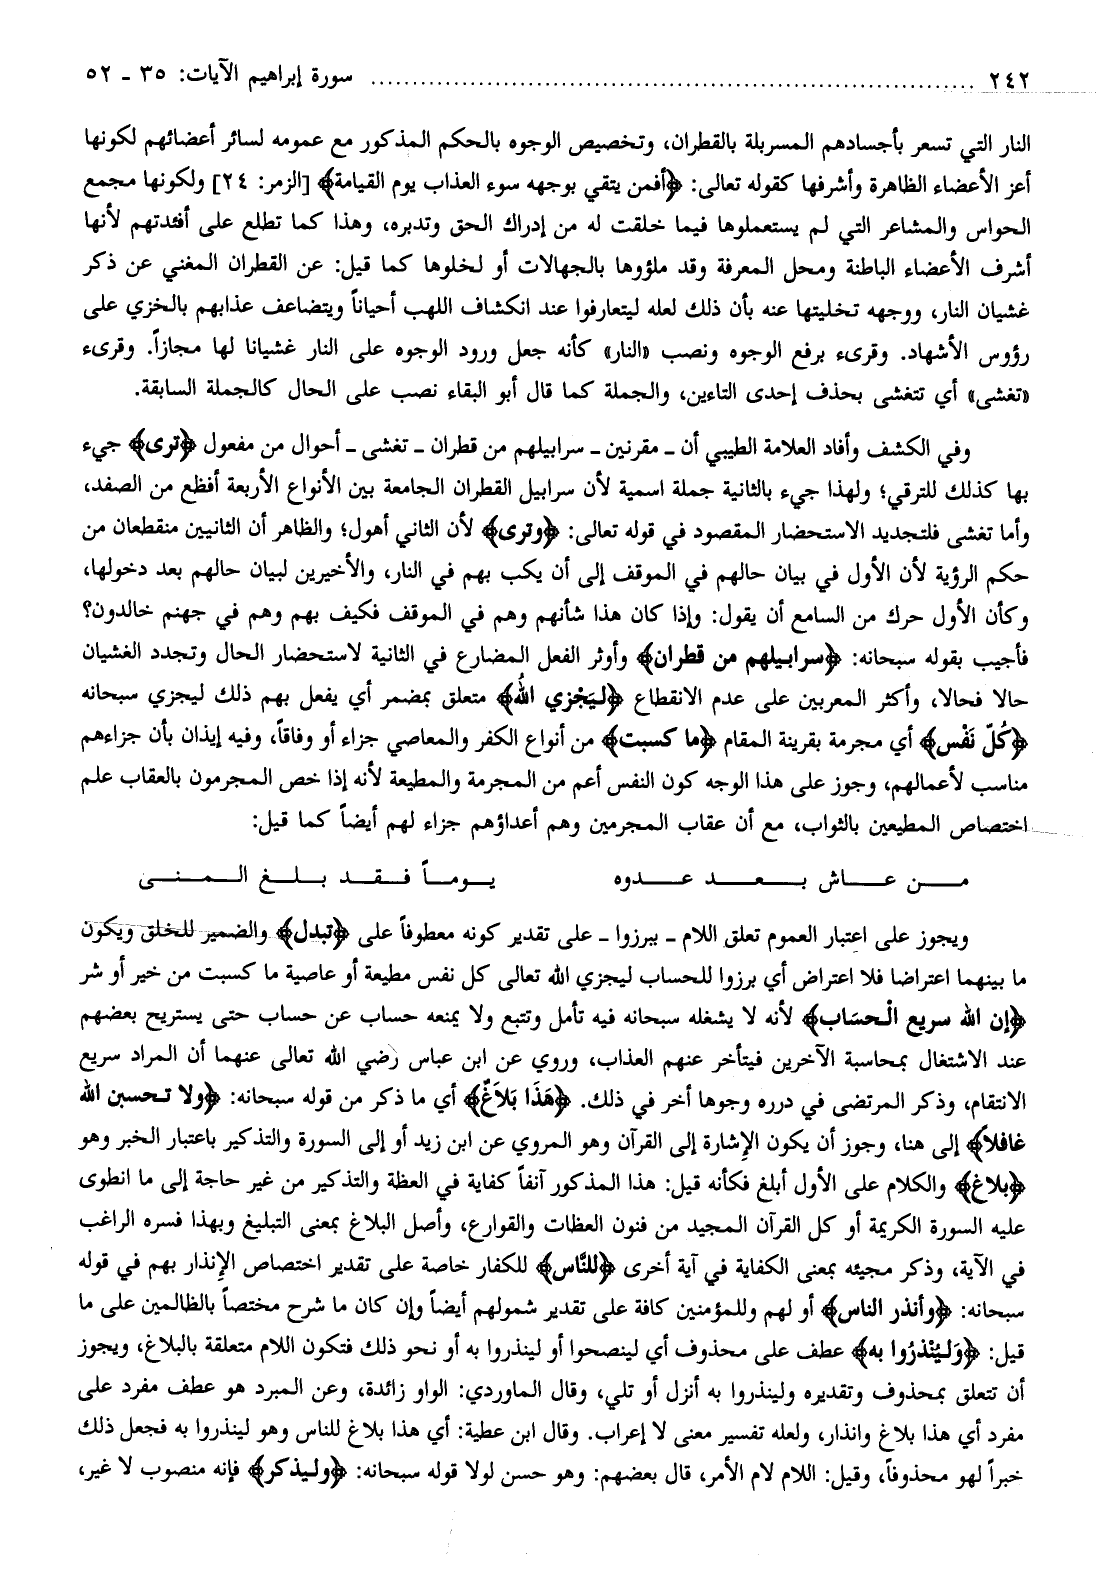 ٢٤٢ ........................................................................ سورة إبراهيم الآيات: ٣٥ ـ ٥٢
النار التي تسعر بأجسادهم المسربلة بالقطران، وتخصيص الوجوه بالحكم المذكور مع عمومه لسائر أعضائهم لكونها
أعز الأعضاء الظاهرة وأشرفها كقوله تعالى: ﴿أفمن يتقي بوجهه سوء العذاب يوم القيامة﴾ [الزمر: ٢٤] ولكونها مجمع
الحواس والمشاعر التي لم يستعملوها فيما خلقت له من إدراك الحق وتدبره، وهذا كما تطلع على أفئدتهم لأنها
أشرف الأعضاء الباطنة ومحل المعرفة وقد ملؤوها بالجهالات أو لخلوها كما قيل: عن القطران المغني عن ذكر
غشيان النار، ووجهه تخليتها عنه بأن ذلك لعله ليتعارفوا عند انكشاف اللهب أحياناً ويتضاعف عذابهم بالخزي على
رؤوس الأشهاد. وقرىء برفع الوجوه ونصب «النار» كأنه جعل ورود الوجوه على النار غشيانا لها مجازاً. وقرىء
«تغشى» أي تتغشى بحذف إحدى التاءين، والجملة كما قال أبو البقاء نصب على الحال كالجملة السابقة.
وفي الكشف وأفاد العلامة الطيبي أن ـ مقرنين ـ سرابيلهم من قطران ـ تغشى ـ أحوال من مفعول ﴿ترى﴾ جيء
بها كذلك للترقي؛ ولهذا جيء بالثانية جملة اسمية لأن سرابيل القطران الجامعة بين الأنواع الأربعة أفظع من الصفد،
وأما تغشى فلتجديد الاستحضار المقصود في قوله تعالى: ﴿وترى﴾ لأن الثاني أهول؛ والظاهر أن الثانيين منقطعان من
حكم الرؤية لأن الأول في بيان حالهم في الموقف إلى أن يكب بهم في النار، والأخيرين لبيان حالهم بعد دخولها،
وكأن الأول حرك من السامع أن يقول: وإذا كان هذا شأنهم وهم في الموقف فكيف بهم وهم في جهنم خالدون؟
فأجيب بقوله سبحانه: ﴿سرابيلهم من قطران﴾ وأوثر الفعل المضارع في الثانية لاستحضار الحال وتجدد الغشيان
حالا فحالا، وأكثر المعربين على عدم الانقطاع ﴿لِيَجْزي اللهُ﴾ متعلق بمضمر أي يفعل بهم ذلك ليجزي سبحانه
﴿كُلّ نَفْس﴾ أي مجرمة بقرينة المقام ﴿ما كسبت﴾ من أنواع الكفر والمعاصي جزاء أو وفاقاً، وفيه إيذان بأن جزاءهم
مناسب لأعمالهم، وجوز على هذا الوجه كون النفس أعم من المجرمة والمطيعة لأنه إذا خص المجرمون بالعقاب علم
اختصاص المطيعين بالثواب، مع أن عقاب المجرمين وهم أعداؤهم جزاء لهم أيضاً كما قيل:
مـن عـاش بـعـد عـدوه يـومـاً فـقـد بـلـغ الـمـنـى
ويجوز على اعتبار العموم تعلق اللام ـ ببرزوا ـ على تقدير كونه معطوفاً على ﴿تبدل﴾ والضمير للخلق ويكون
ما بينهما اعتراضا فلا اعتراض أي برزوا للحساب ليجزي الله تعالى كل نفس مطيعة أو عاصية ما كسبت من خير أو شر
﴿إن الله سريع الْحسَاب﴾ لأنه لا يشغله سبحانه فيه تأمل وتتبع ولا يمنعه حساب عن حساب حتى يستريح بعضهم
عند الاشتغال بمحاسبة الآخرين فيتأخر عنهم العذاب، وروي عن ابن عباس رضي الله تعالى عنهما أن المراد سريع
الانتقام، وذكر المرتضى في درره وجوها أخر في ذلك. ﴿هَذَا بَلاَغٌ﴾ أي ما ذكر من قوله سبحانه: ﴿ولا تحسبن الله
غافلا﴾ إلى هنا، وجوز أن يكون الإشارة إلى القرآن وهو المروي عن ابن زيد أو إلى السورة والتذكير باعتبار الخبر وهو
﴿بلاغ﴾ والكلام على الأول أبلغ فكأنه قيل: هذا المذكور آنفاً كفاية في العظة والتذكير من غير حاجة إلى ما انطوى
عليه السورة الكريمة أو كل القرآن المجيد من فنون العظات والقوارع، وأصل البلاغ بمعنى التبليغ وبهذا فسره الراغب
في الآية، وذكر مجيئه بمعنى الكفاية في آية أخرى ﴿للنَّاس﴾ للكفار خاصة على تقدير اختصاص الإنذار بهم في قوله
سبحانه: ﴿وأنذر الناس﴾ أو لهم وللمؤمنين كافة على تقدير شمولهم أيضاً وإن كان ما شرح مختصاً بالظالمين على ما
قيل: ﴿وَليُنْذرُوا به﴾ عطف على محذوف أي لينصحوا أو لينذروا به أو نحو ذلك فتكون اللام متعلقة بالبلاغ، ويجوز
أن تتعلق بمحذوف وتقديره ولينذروا به أنزل أو تلي، وقال الماوردي: الواو زائدة، وعن المبرد هو عطف مفرد على
مفرد أي هذا بلاغ وانذار، ولعله تفسير معنى لا إعراب. وقال ابن عطية: أي هذا بلاغ للناس وهو لينذروا به فجعل ذلك
خبراً لهو محذوفاً، وقيل: اللام لام الأمر، قال بعضهم: وهو حسن لولا قوله سبحانه: ﴿وليذكر﴾ فإنه منصوب لا غير،